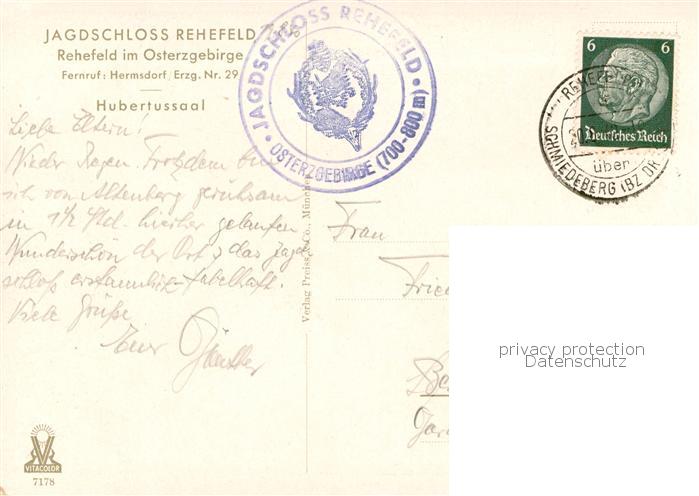 JAGDSCHLOSS REHEFELD
Rehefeld im Osterzgebirge
Fernruf: Hermsdorf/Erzg. Nr. 29
Hubertussaal
JAGDSCHLOSS REHEFELD
OSTERZGEBIRGE (700-800 m)
6 6
Deutsches Reich
über
SCHMIEDEBERG (BZ DR
Liebe Eltern!
Wieder Regen. Trotzdem bin
ich von Altenberg geruhsam
in 1½ Std. hierher gelaufen
Wunderschön der Ort, das Jagd
schloß erstaunlich fabelhaft.
Viele Grüße
Euer Günther
Verlag Preiss & Co., München
Frau
privacy protection
Datenschutz
VITACOLOR
7178